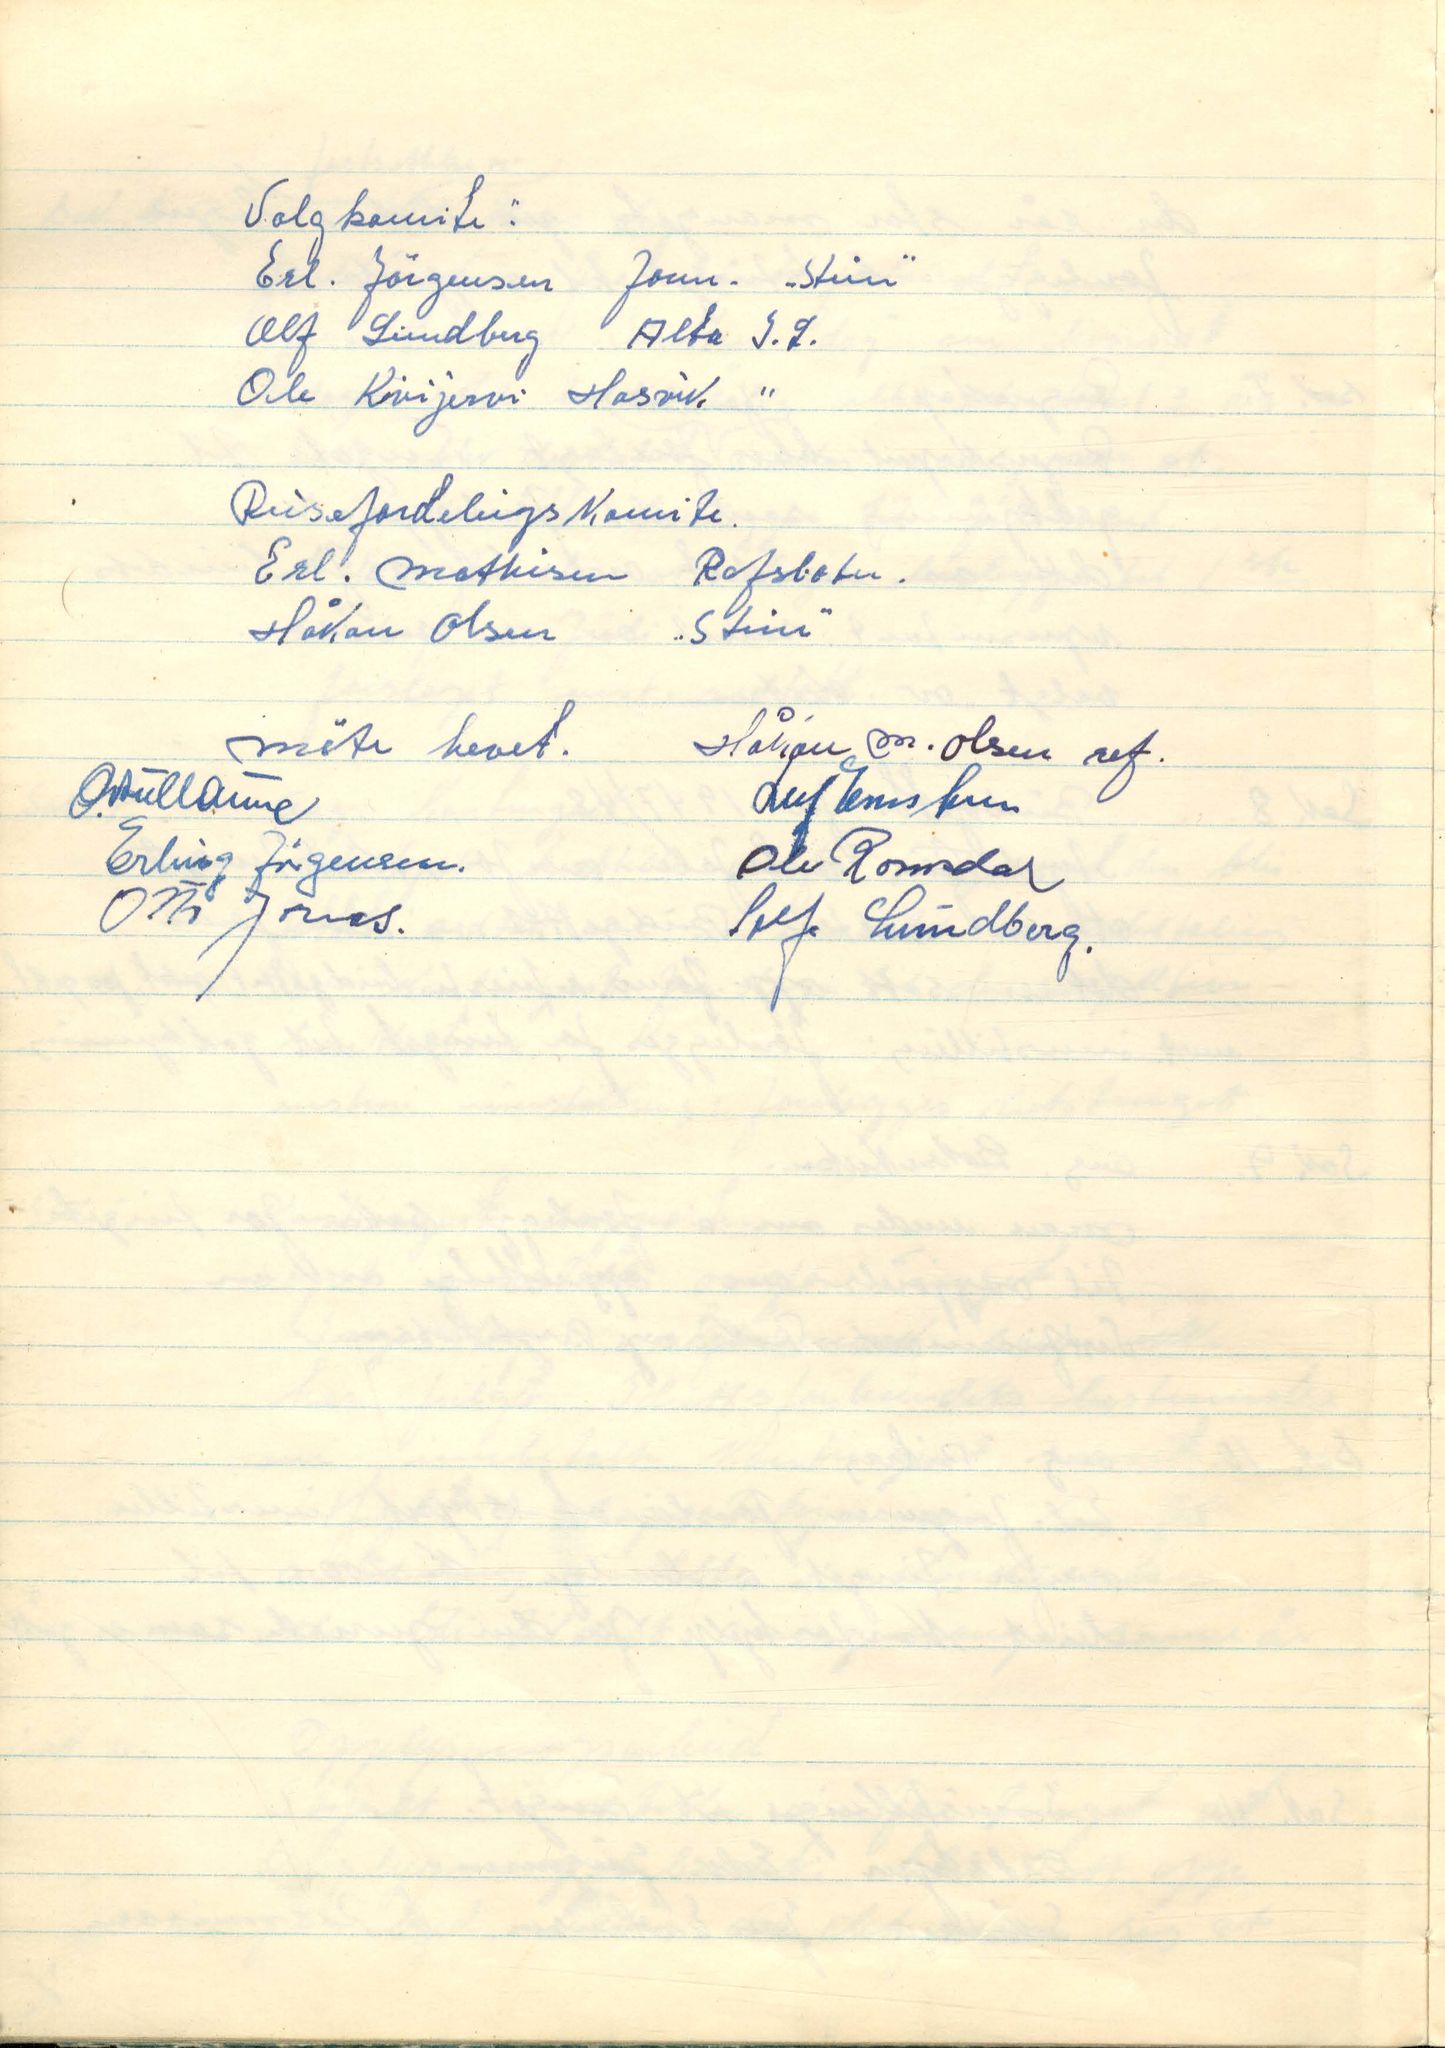 Valgkomite:
Erl. Jörgensen Form. "Stein"
Alf Lundberg Alta I.L.
Ole Kivijervi Hasvik "
Reisefordelingskomite.
Erl. Mathisen Rafsbotn.
Håkon Olsen "Stein"
Möte hevet. Håkon M. Olsen ref.
Leif
Erling Jörgensen. Ole Romsdal
Otto Jonas. Alf Lundberg.